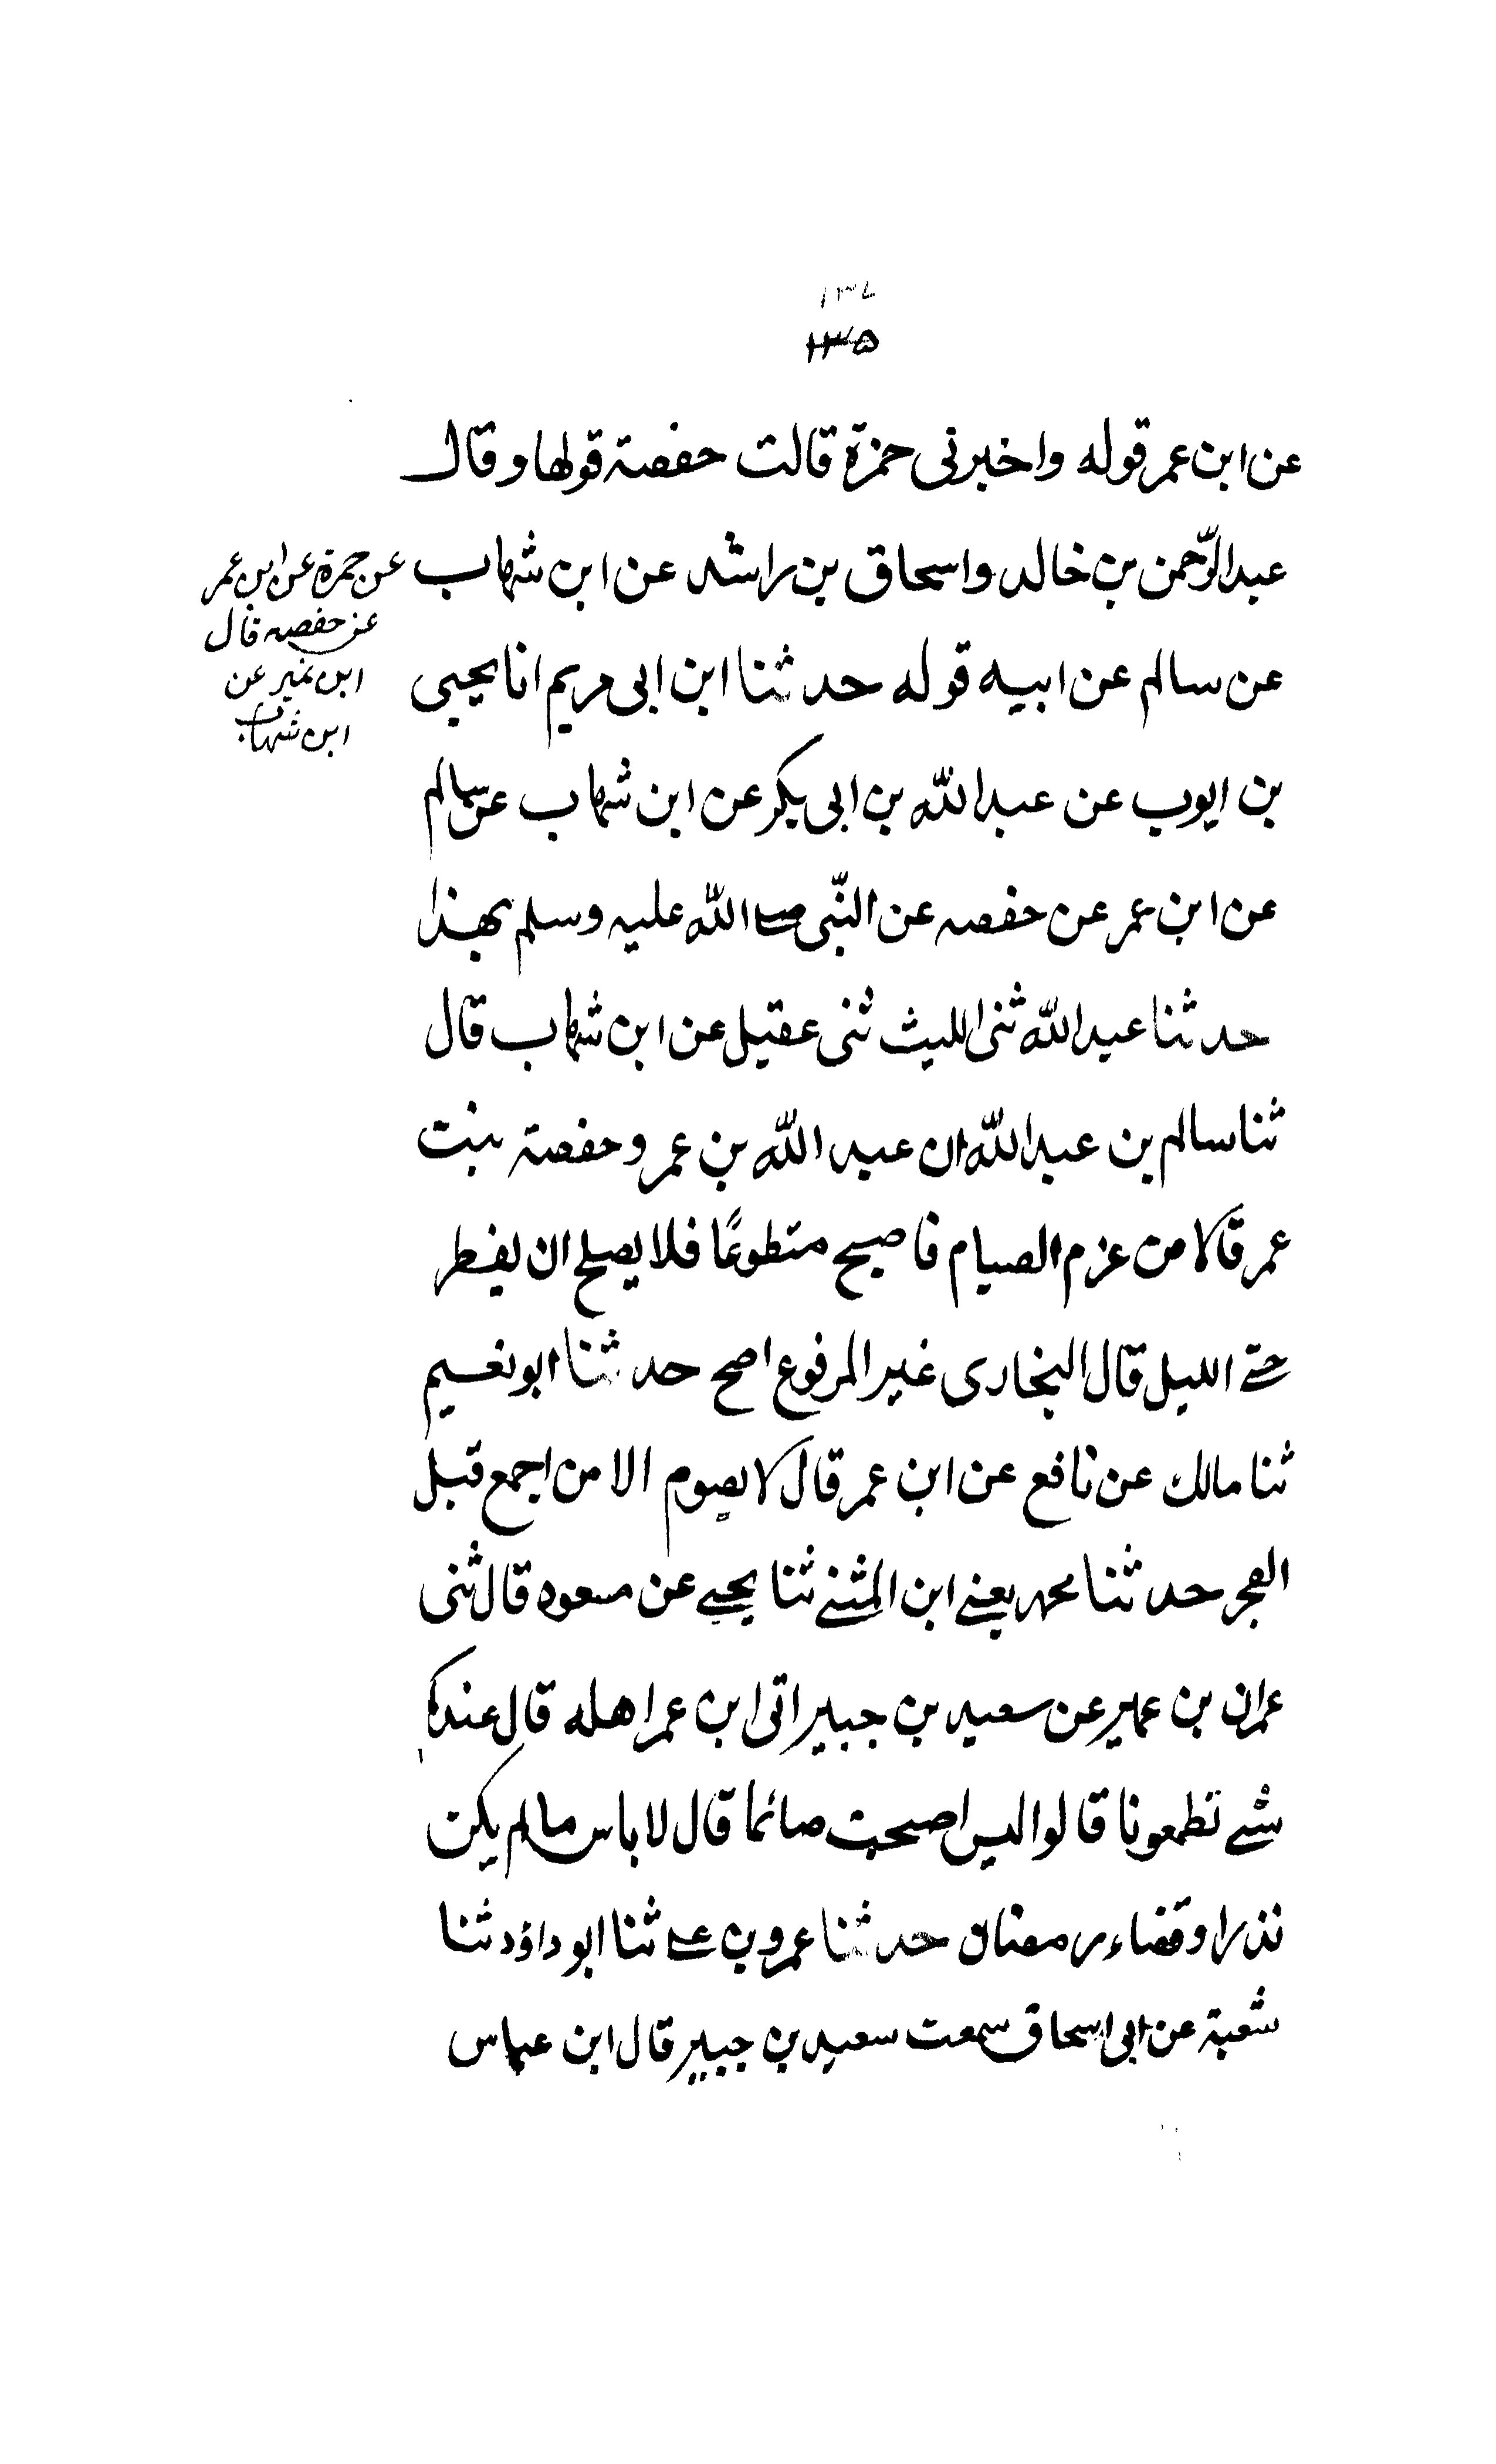 ١٣٧
١٣٥
عن ابن عمر قوله واخبرنى حمزة قالت حفصة قولها وقال
عبد الرّحمن بن خالد واسحاق بن راشد عن ابن شهاب
عن حمزة عن ابن عمر
عن حفصه قال
ابن نمير عن
ابن شهاب
عن سالم عن ابيه قوله حدثنا ابن ابى مريم انا يحيى
بن ايوب عن عبد الله بن ابى بكر عن ابن شهاب عن سالم
عن ابن عمر عن حفصه عن النّبى صلى الله عليه وسلم بهذا
حدثنا عبد الله ثنى الليث ثنى عقيل عن ابن شهاب قال
ثنا سالم بن عبد الله ان عبد الله بن عمر وحفصة بنت
عمر قالا من عزم الصيام فاصبح متطوعًا فلا يصلح ان يفطر
حتى الليل قال البخارى غير المرفوع اصح حدثنا ابو نعيم
ثنا مالك عن نافع عن ابن عمر قال لا يصوم الا من اجمع قبل
الفجر حدثنا محمد يعنى ابن المثنى ثنا يحيى عن مسعود قال ثنى
عمران بن عمير عن سعيد بن جبير اتى ابن عمر اهله قال عندكم
شى تطعمونا قالوا اليس اصبحت صائما قال لا باس ما لم يكن
نذرا وقضاء رمضان حدثنا عمرو بن على ثنا ابو داؤد ثنا
شعبة عن ابى اسحاق سمعت سعيد بن جبير قال ابن عباس